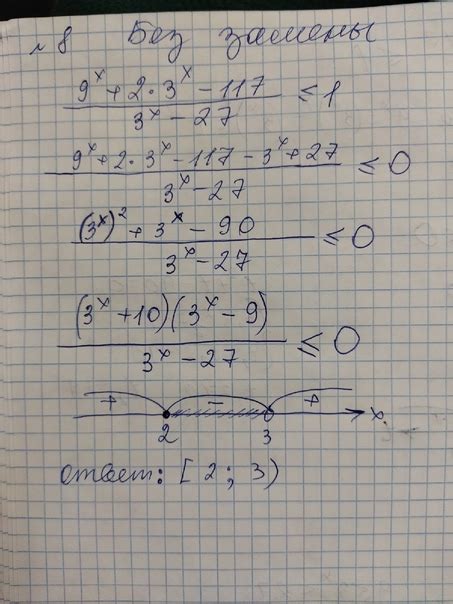 №8 Без замены
(9^x + 2·3^x − 117)/(3^x − 27) ≤ 1
(9^x + 2·3^x − 117 − 3^x + 27)/(3^x − 27) ≤ 0
((3^x)^2 + 3^x − 90)/(3^x − 27) ≤ 0
((3^x + 10)(3^x − 9))/(3^x − 27) ≤ 0
+ − + x
2 3
ответ: [2; 3)